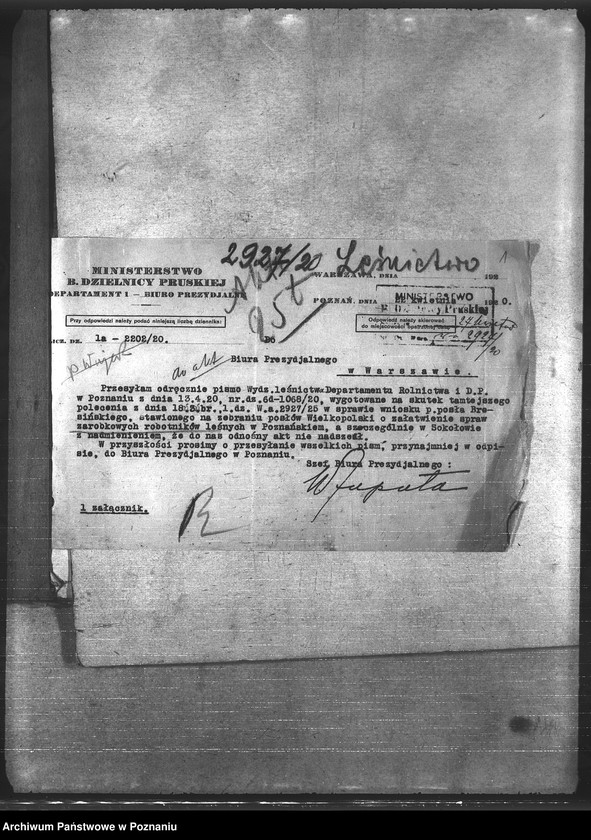 2927/20 Leśnictwo 1
MINISTERSTWO
B. DZIELNICY PRUSKIEJ
DEPARTAMENT I – BIURO PREZYDJALNE
WARSZAWA, DNIA 192
POZNAŃ, DNIA 22 kwietnia 1920.
MINISTERSTWO
B. Dzielnicy Pruskiej
Przy odpowiedzi należy podać niniejszą liczbę dziennika:
Odpowiedź należy skierować do miejscowości
LICZ. DZ. 1a - 2202/20.
Do
do akt
Biura Prezydjalnego
w Warszawie.
Przesyłam odręcznie pismo Wydz.leśnictwa Departamentu Rolnictwa i D.P.
w Poznaniu z dnia 13.4.20, nr.dz.6d-1068/20, wygotowane na skutek tamtejszego
polecenia z dnia br.l.dz. W.a.2927/25 w sprawie wniosku p.posła Bre-
sińskiego, stawionego na zebraniu posłów Wielkopolski o załatwienie spraw
zarobkowych robotników leśnych w Poznańskiem, a szczególnie w Sokołowie
z nadmienieniem, że do nas odnośny akt nie nadszedł.
W przyszłości prosimy o przesyłanie wszelkich pism, przynajmniej w odpi-
sie, do Biura Prezydjalnego w Poznaniu.
Szef Biura Prezydjalnego :
1 załącznik.
Archiwum Państwowe w Poznaniu